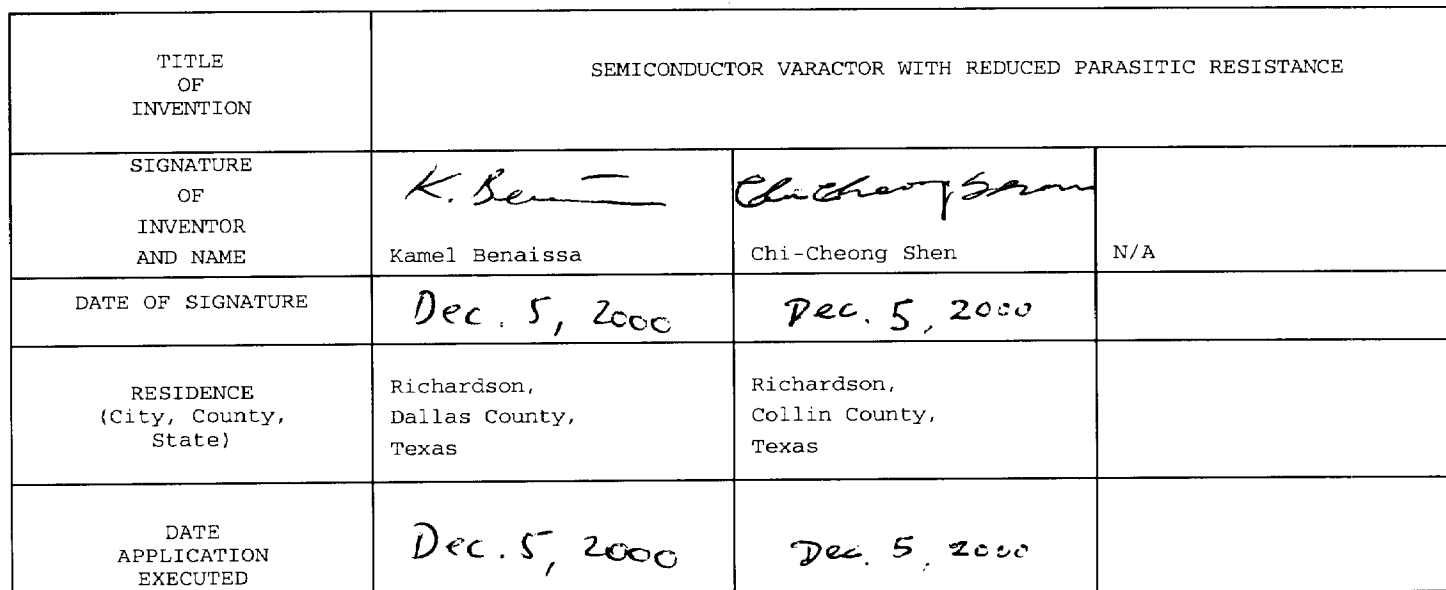 TITLE
OF
INVENTION
SEMICONDUCTOR VARACTOR WITH REDUCED PARASITIC RESISTANCE
SIGNATURE
OF
INVENTOR
AND NAME
K. Ben
Kamel Benaissa
Chi-Cheong Shen
N/A
DATE OF SIGNATURE
Dec. 5, 2000
Dec. 5, 2000
RESIDENCE
(City, County,
State)
Richardson,
Dallas County,
Texas
Richardson,
Collin County,
Texas
DATE
APPLICATION
EXECUTED
Dec. 5, 2000
Dec. 5, 2000